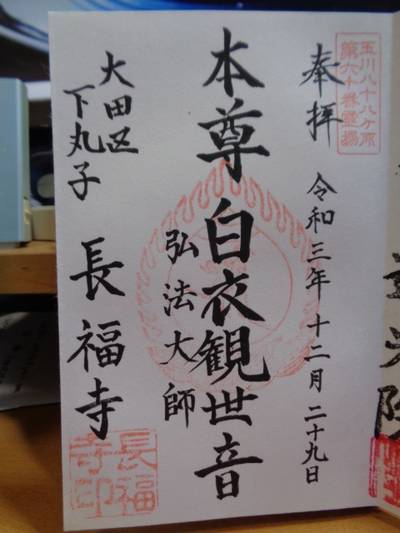 玉川八十八ヶ所
第六十番霊場
奉拝
令和三年十二月二十九日
本尊白衣観世音
弘法大師
大田区
下丸子
長福寺
長福
寺印